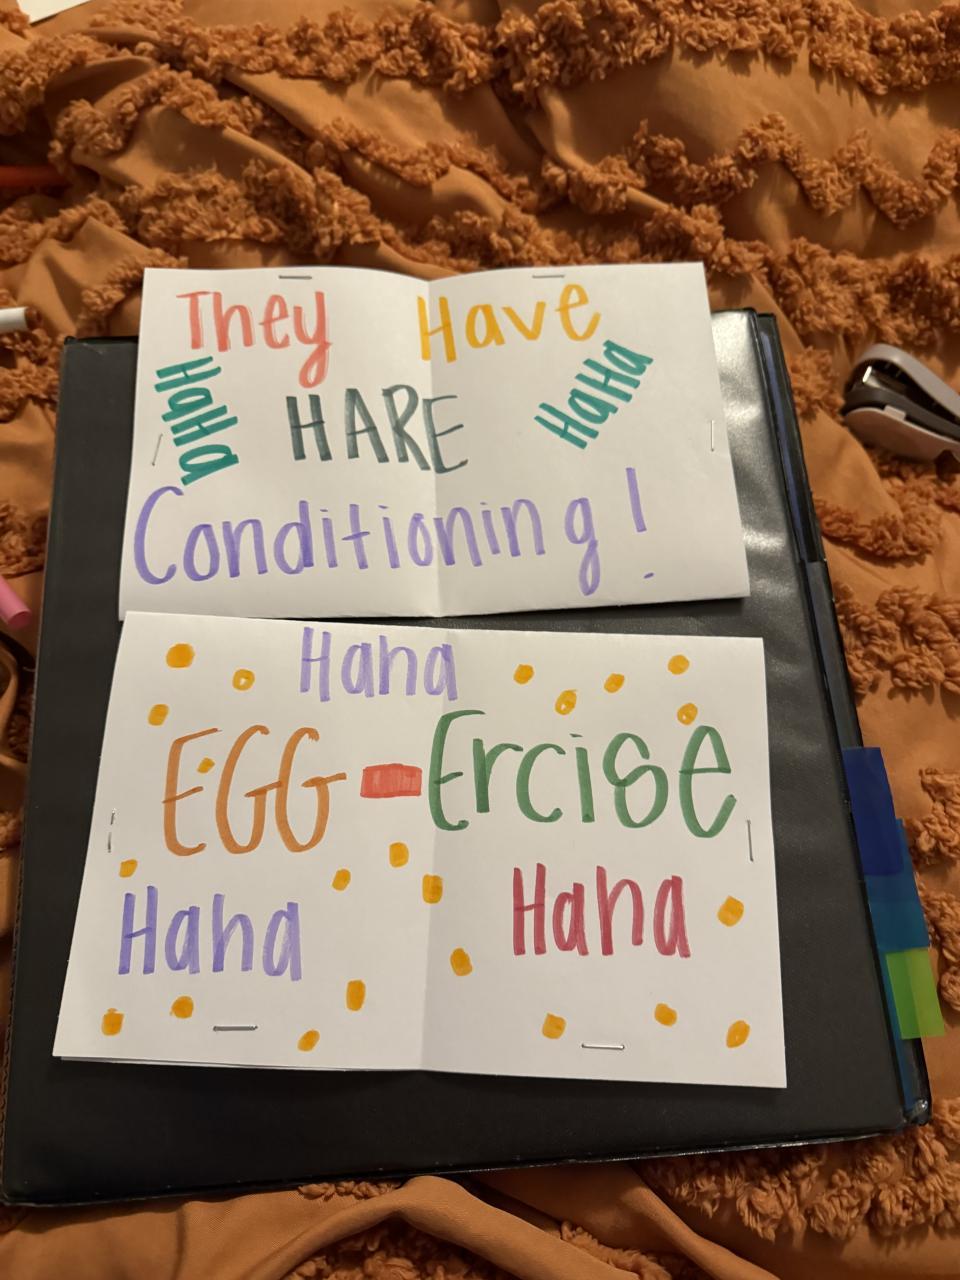 They Have
HaHa
HARE
HaHa
Conditioning!
Haha
EGG-Ercise
Haha
Haha